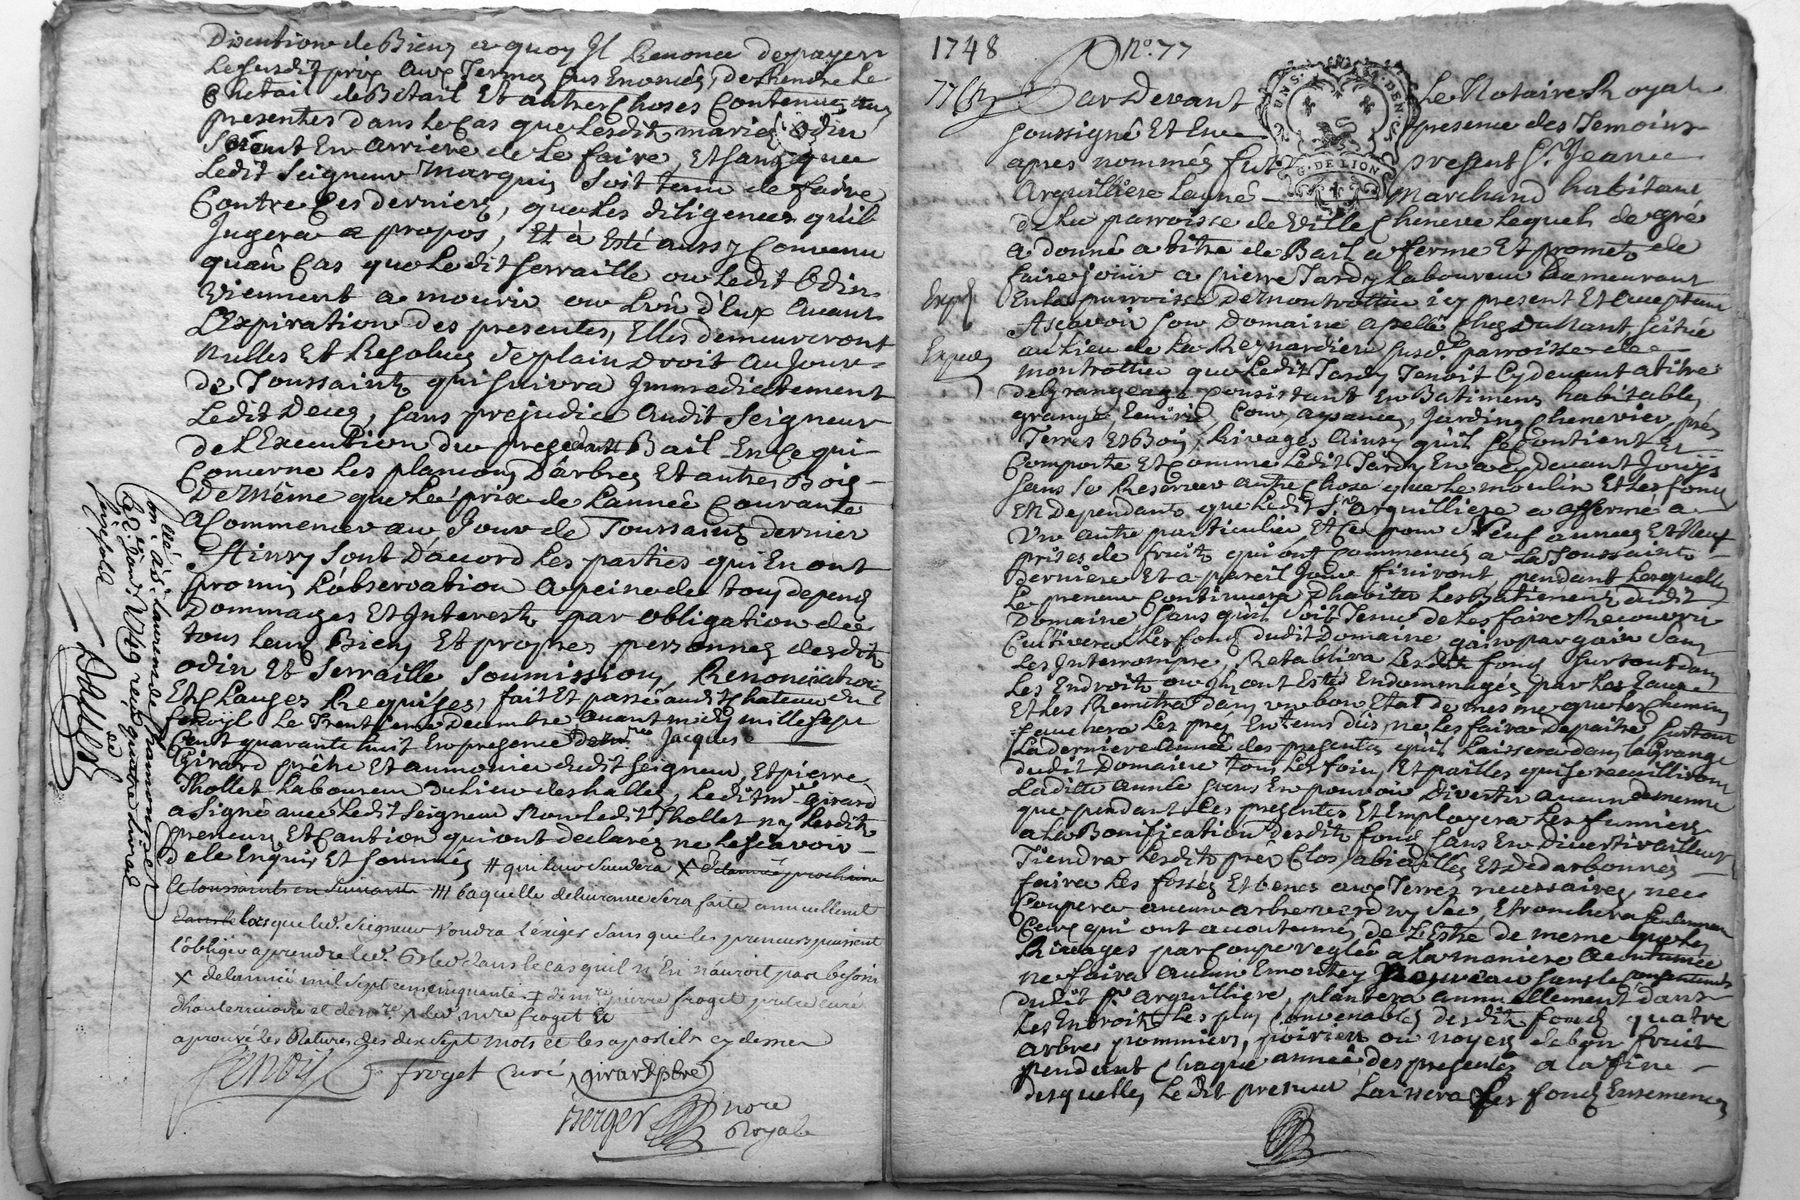 Discution de Biens a quoy Il Renonce de payer
Le susdit prix aux Termes sus Enoncés, de Rendre Le
Chetail de Betail Et autres Choses Contenues aux
presentes dans Le Cas que Lesdits mariés Odin
Seroient En arriere de Le faire, Et sans que
Ledit Seigneur Marquis soit tenu de faire
Contre Ces derniers, que Les diligences qu'il
Jugera a propos, Et à Esté aussy Convenu
qu'au Cas que Ledit Serraille ou Ledit Odin
Viennent a mourir ou L'un d'Eux avant
L'Expiration des presentes, Elles demeureront
Nulles Et Resolues de plain Droit au Jour
De Toussaints qui suivra Immediatement
Ledit Deces, sans prejudice audit Seigneur
de L'Execution du present Bail En Ce qui
Concerne Les plancons D'arbres Et autres Bois
De Même que Le prix de L'année Courante
a Commencer au Jour de Toussaints dernier
Ainsy sont D'accord Les parties qui En ont
promis L'observation a peine de tous depens
Dommages Et Interests par obligation de
tous Leurs Biens Et propres personnes desdits
odin Et Serraille Soumissions, Renonciations
Et Clauses Requises, fait Et passé audit Chateau de
fenoyl Le Trentieme Decembre avant midy mille sept
Cent quarante huit En presence de Mre Jacques
Girard prêtre Et aumonier dudit Seigneur, Et pierre
Thollet Laboureur du Lieu des halles, Ledit Mre girard
a signé avec Ledit Seigneur Non Ledit Thollet ny Lesdits
preneurs Et Caution qui ont declarés ne Le sçavoir
de ce Enquis Et sommés # qui Luy
Et toussaints en suivante /// Laquelle delivrance sera faite annuellement
lorsque led. Seigneur voudra l'exiger sans que les preneurs puissent
l'obliger a prendre led. Bled dans le cas qu'il n'En n'auroit pas besoin
X de l'année mil sept cent cinquante. ‡ de mre pierre froget pretre curé
et de mre led. mre froget Et
aprouvé les Ratures des dix sept mots et les apostiles cy dessus
fenoyl froget Curé girard ptre
Berger nore
Royale
Con.lé à St Laurent de Chamousset
Le 2e Janv. 1749 reçu quatre livres
1748 No. 77
Par Devant Le Notaire Royal
soussigné Et En presence des Temoins
apres nommés fut present Sr. Jean
Arquilliere Layné Marchand habitant
de La parroisse de Ville Cheneve Lequel de gré
a donné a titre de Bail a ferme Et promet de
faire jouir a pierre Tardy Laboureur demeurant
En La parroisse De Montrottier icy present Et acceptant
Expé
Ascavoir son Domaine apellé Chez Dunant, scitué
au Lieu de La Reynardiere susd. parroisse de
Montrottier que Ledit Tardy Tenoit Cy devant a titre
De Grangeage Consistant En Batimens habitables
granges, Ecuries, Cour, aysances, Jardins, Chenevier, prés
Terres Et Bois, Rivages Ainsy qu'il se Contient Et
Comporte Et Comme Ledit Tardy En a Cy devant Jouys
sans se Reserver autre Chose que Le moulin Et Les fonds
En Dependants que Ledit Sr. Arquilliere a affermé a
Un autre particulier Et Ce pour Neuf années Et Neuf
prises de fruits qui ont Commencés a La Toussaints
derniere Et a pareil Jour finiront, pendant Lesquelles
Le preneur Continuera D'habiter Les Batiments dudit
Domaine, sans qu'il soit Tenu de Les faire Recouvrir
Cultivera Les fonds dudit Domaine gain par gain sans
Les Interrompre, Retablira Lesdits fonds surtout dans
Les Endroits ou Ils ont Estés Endommagés par Les Eaux
Et Les Remettra dans un bon Etat de mesme que Les Chemins
fauchera Les prés En tems dus, ne Les faira depaitre surtout
La derniere Année des presentes qu'il Laissera dans La Grange
dudit Domaine tous Les foins Et pailles qui se recuilliront
Ladite année sans En pouvoir Divertir aucun de mesme
que pendant Les presentes Et Employera Les fumiers
a La Bonification Desdits fonds sans En Divertir ailleurs
Tiendra Lesdits prés Clos,
faira Les fossés Et berces aux Terres necessaires ne
Coupera aucun arbre verd ny sec, Etronchera seulement
Ceux qui ont accoutumés de L'Estre de meme que Les
Rivages par Coupe reglée a La maniere accoutumée
ne faira aucun Emontey Nouveau sans Le Consentement
dudit Sr. Arquilliere, plantera annuellement dans
Les Endroits Les plus Convenables desdits fonds quatre
arbres pommiers, poiriers ou noyers de bon fruit
pendant Chaque année des presentes a La fin
desquelles Ledit preneur Laissera Les fonds Ensemencés
G. DE LION